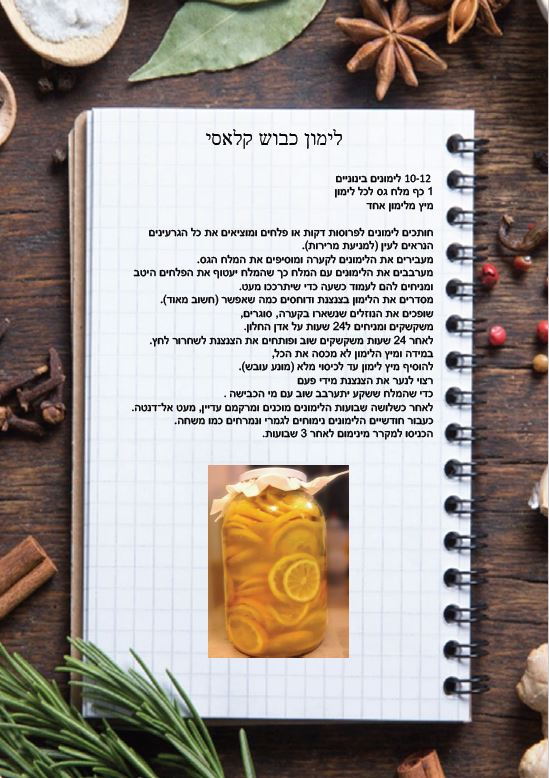 לימון כבוש קלאסי
10-12 לימונים בינוניים
1 כף מלח גס לכל לימון
מיץ מלימון אחד
חותכים לימונים לפרוסות דקות או פלחים ומוציאים את כל הגרעינים
הנראים לעין (למניעת מרירות).
מעבירים את הלימונים לקערה ומוסיפים את המלח הגס.
מערבבים את הלימונים עם המלח כך שהמלח יעטוף את הפלחים היטב
ומניחים להם לעמוד כשעה כדי שיתרככו מעט.
מסדרים את הלימון בצנצנת ודוחסים כמה שאפשר (חשוב מאוד).
שופכים את הנוזלים שנשארו בקערה, סוגרים,
משקשקים ומניחים ל24 שעות על אדן החלון.
לאחר 24 שעות משקשקים שוב ופותחים את הצנצנת לשחרור לחץ.
במידה ומיץ הלימון לא מכסה את הכל,
להוסיף מיץ לימון עד לכיסוי מלא (מונע עובש).
רצוי לנער את הצנצנת מידי פעם
כדי שהמלח ששקע יתערבב שוב עם מי הכבישה .
לאחר כשלושה שבועות הלימונים מוכנים ומרקמם עדיין, מעט אל־דנטה.
כעבור חודשיים הלימונים נימוחים לגמרי ונמרחים כמו משחה.
הכניסו למקרר מינימום לאחר 3 שבועות.